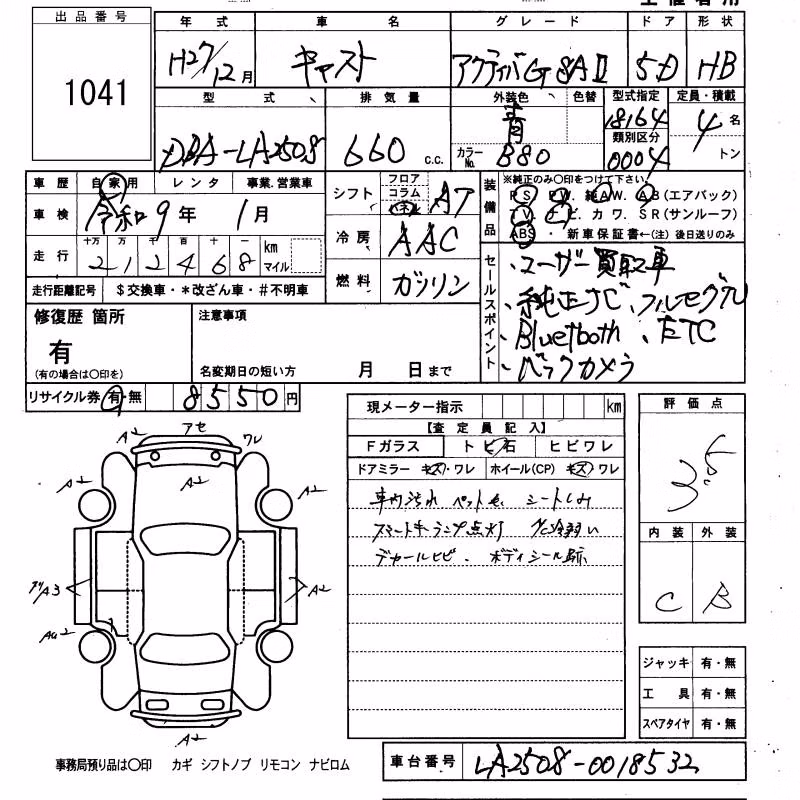 出品番号
1041
年式 車名 グレード ドア 形状
H27/12月 キャスト アクティバG SAⅡ 5D HB
型式 排気量 外装色 色替 型式指定 定員・積載
DBA-LA250S 660 c.c. 青 18164 4名
カラーNo. B80 類別区分 0004 トン
車歴 自家用 レンタ 事業.営業車
車検 令和9年 1月
走行 十万 万 千 百 十 一 km マイル
212468
走行距離記号 $交換車・*改ざん車・#不明車
シフト フロア コラム AT
冷房 AAC
燃料 ガソリン
装備品
※純正のみ〇印をつけて下さい。
PS. PW. 純AW. AB(エアバック)
TV. ナビ. カワ. SR(サンルーフ)
ABS・ 新車保証書←(注)後日送りのみ
セールスポイント
・ユーザー買取車
・純正ナビ、フルセグTV
・Bluetooth、ETC
・バックカメラ
修復歴 箇所
有
(有の場合は〇印を)
注意事項
名変期日の短い方 月 日まで
リサイクル券 有・無 8550円
現メーター指示 km
【査定員記入】
Fガラス トビ石 ヒビワレ
ドアミラー キズ・ワレ ホイール(CP) キズ・ワレ
車内汚れ ペット毛 シートしみ
スマートキーランプ点灯 A/C冷弱い
デカールヒビ. ボディシール跡
評価点
3.5
内装 外装
C B
ジャッキ 有・無
工具 有・無
スペアタイヤ 有・無
A2 アセ ワレ
A2 A2 A2
A3 A2
A2
事務局預り品は〇印 カギ シフトノブ リモコン ナビロム
車台番号 LA250S-0018532